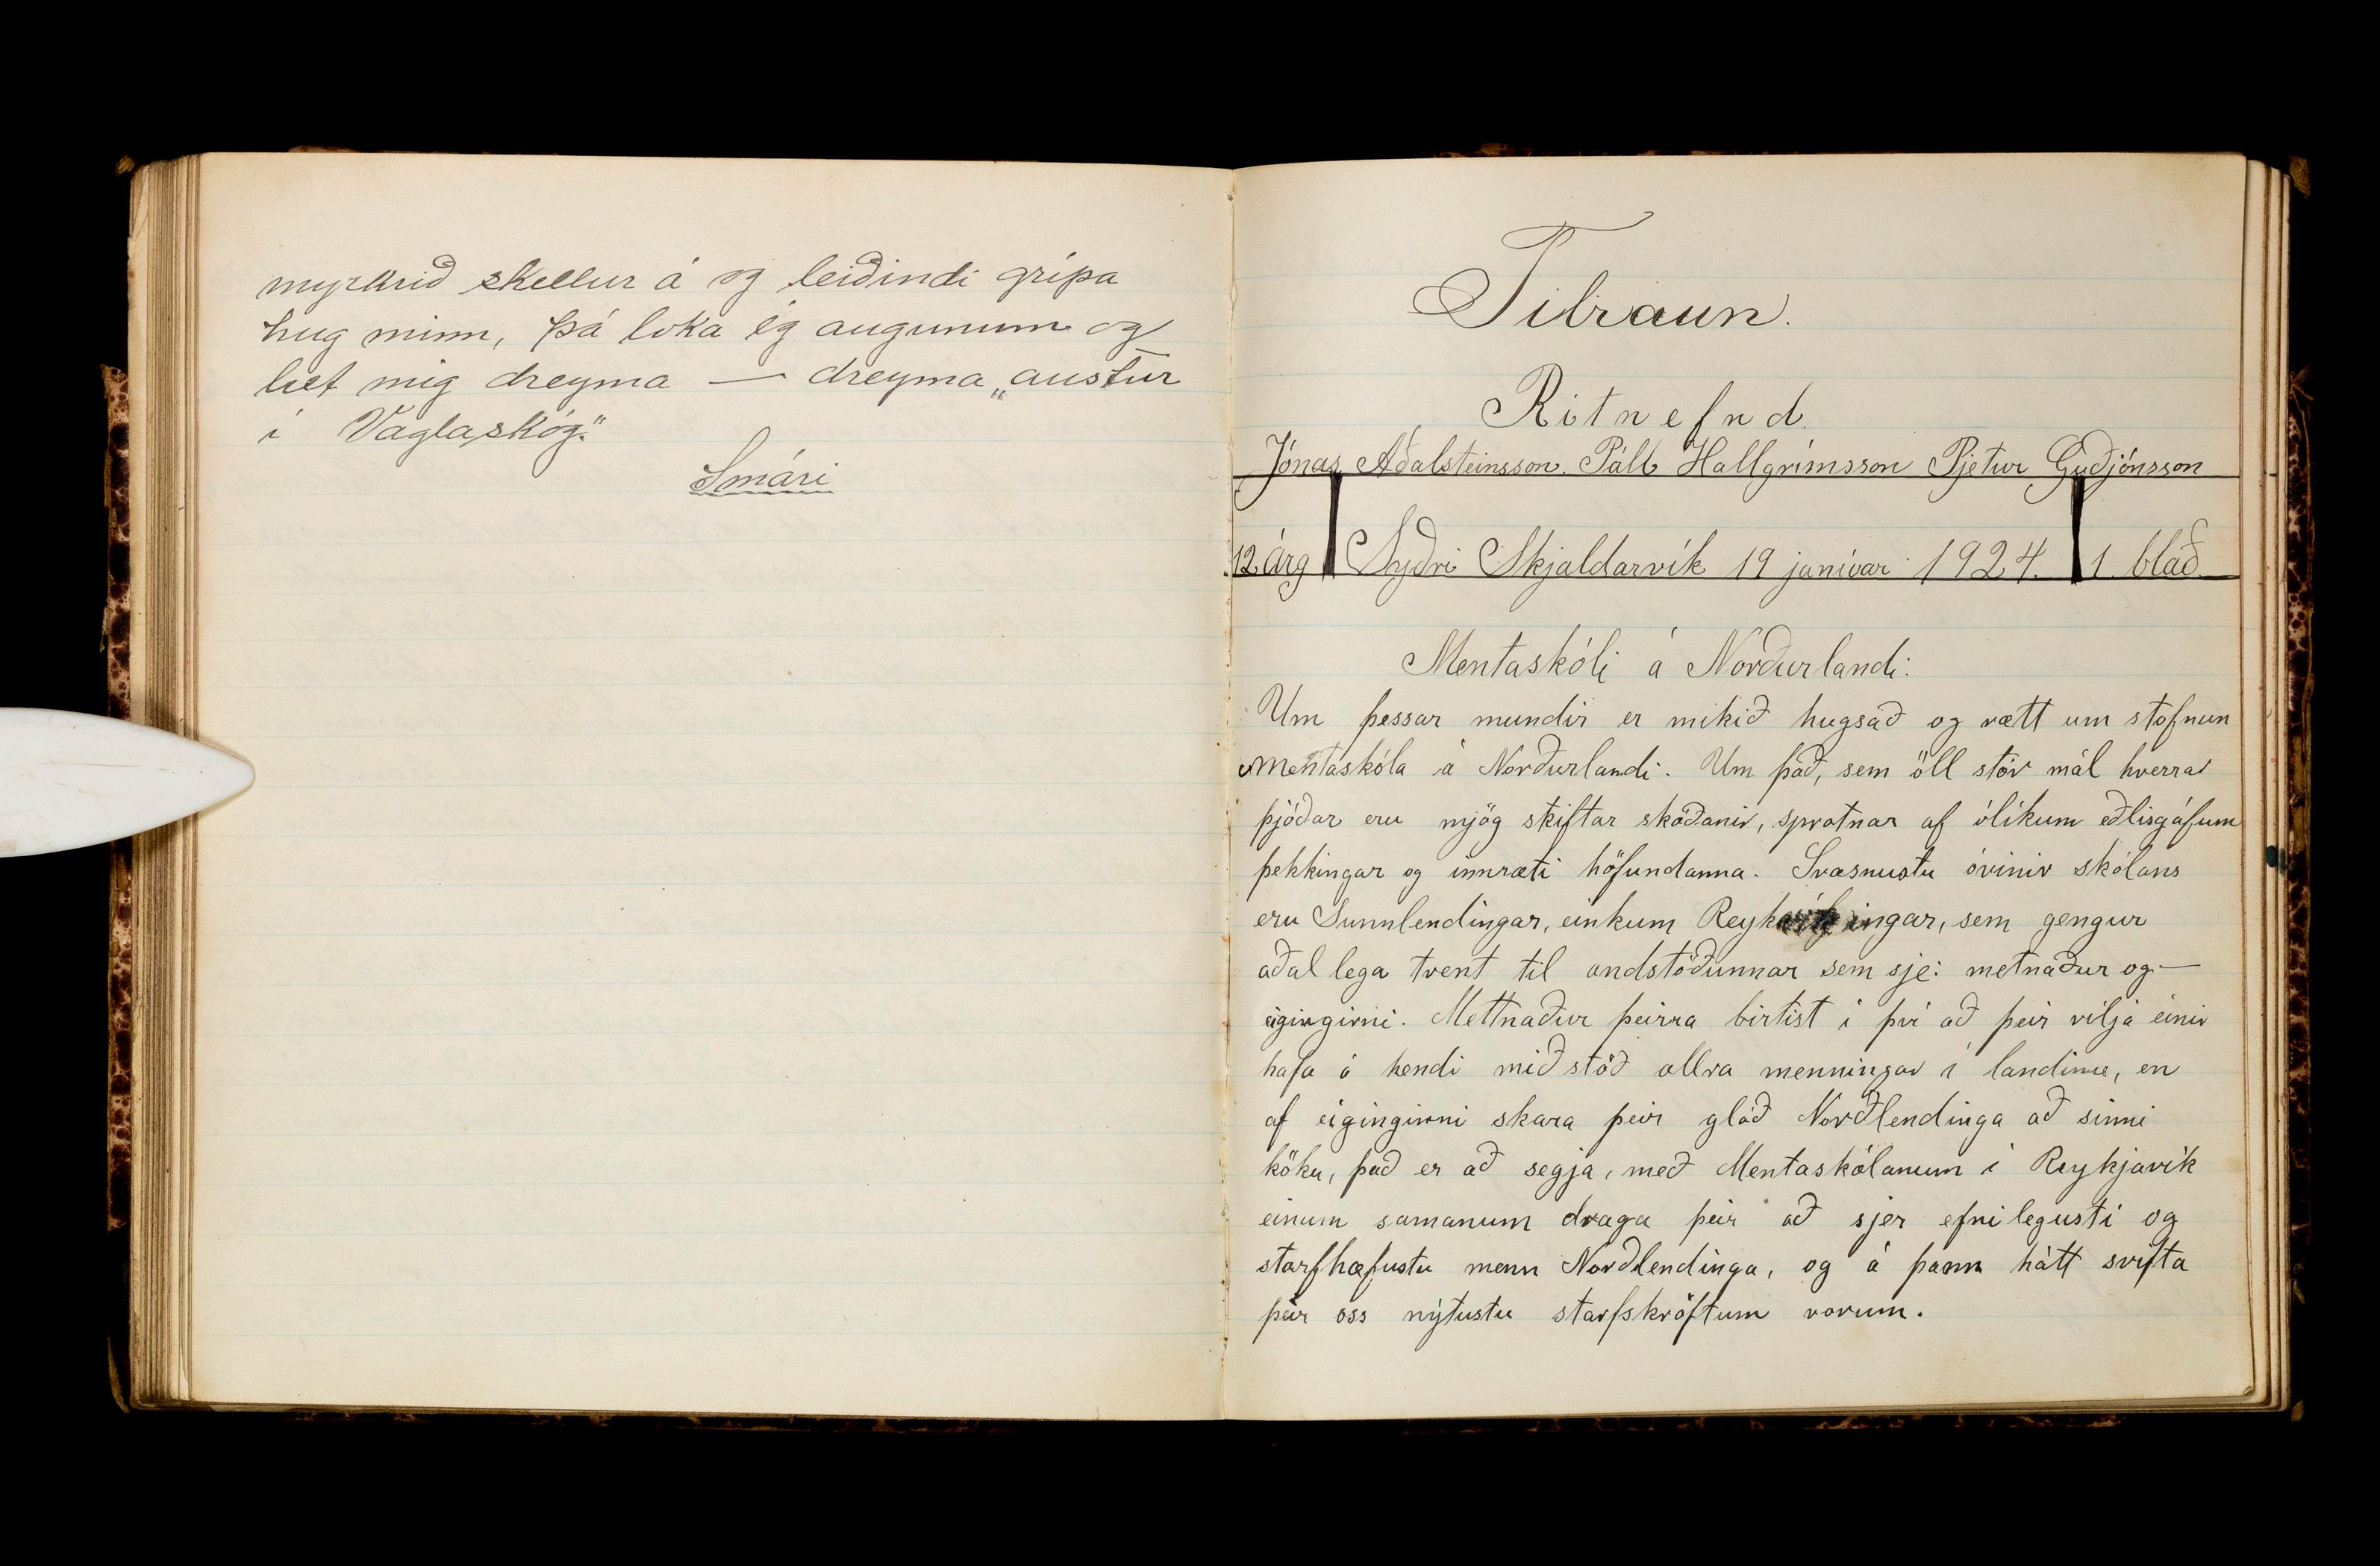 myrkrið skellur á og leiðindi grípa
hug minn, þá loka ég augunum og
læt mig dreyma — dreyma „austur
í Vaglaskóg."
Smári
Tilraun.
Ritnefnd.
Jónas Aðalsteinsson. Páll Hallgrímsson Pjetur Guðjónsson
12. árg Syðri Skjaldarvík 19 janúar 1924. 1. blað.
Mentaskóli á Norðurlandi.
Um þessar mundir er mikið hugsað og rætt um stofnun
Mentaskóla á Norðurlandi. Um það, sem öll stór mál hverrar
þjóðar eru mjög skiftar skoðanir, sprotnar af ólíkum eðlisgáfum
þekkingar og innræti höfundanna. Svæsnustu óvinir skólans
eru Sunnlendingar, einkum Reykvíkingar, sem gengur
aðal lega trent til andstöðunnar sem sje: metnaður og —
eigingirni. Mettnaður þeirra birtist í því að þeir vilja einir
hafa á hendi miðstöð allra menningar í landinu, en
af eigingirni skara þeir glóð Norðlendinga að sinni
köku, það er að segja, með Mentaskólanum í Reykjavík
einum samanum draga þeir að sjer efnilegusti og
starfhæfustu menn Norðlendinga, og á þann hátt svifta
þeir oss nýtustu starfskröftum vorum.